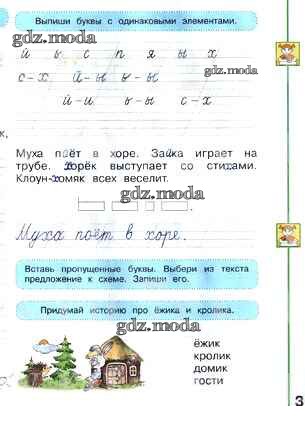 Выпиши буквы с одинаковыми элементами.
gdz.moda
й ь с п я ы х
gdz.moda
с-х й-ы ь-ы
й-и ь-ы с-х
gdz.moda
Муха поёт в хоре. Зайка играет на
трубе. Хорёк выступает со стихами.
Клоун-хомяк всех веселит.
gdz.moda
Муха поёт в хоре.
gdz.moda
Вставь пропущенные буквы. Выбери из текста
предложение к схеме. Запиши его.
gdz.moda
Придумай историю про ёжика и кролика.
gdz.moda
ёжик
кролик
домик
гости
gdz.moda
3